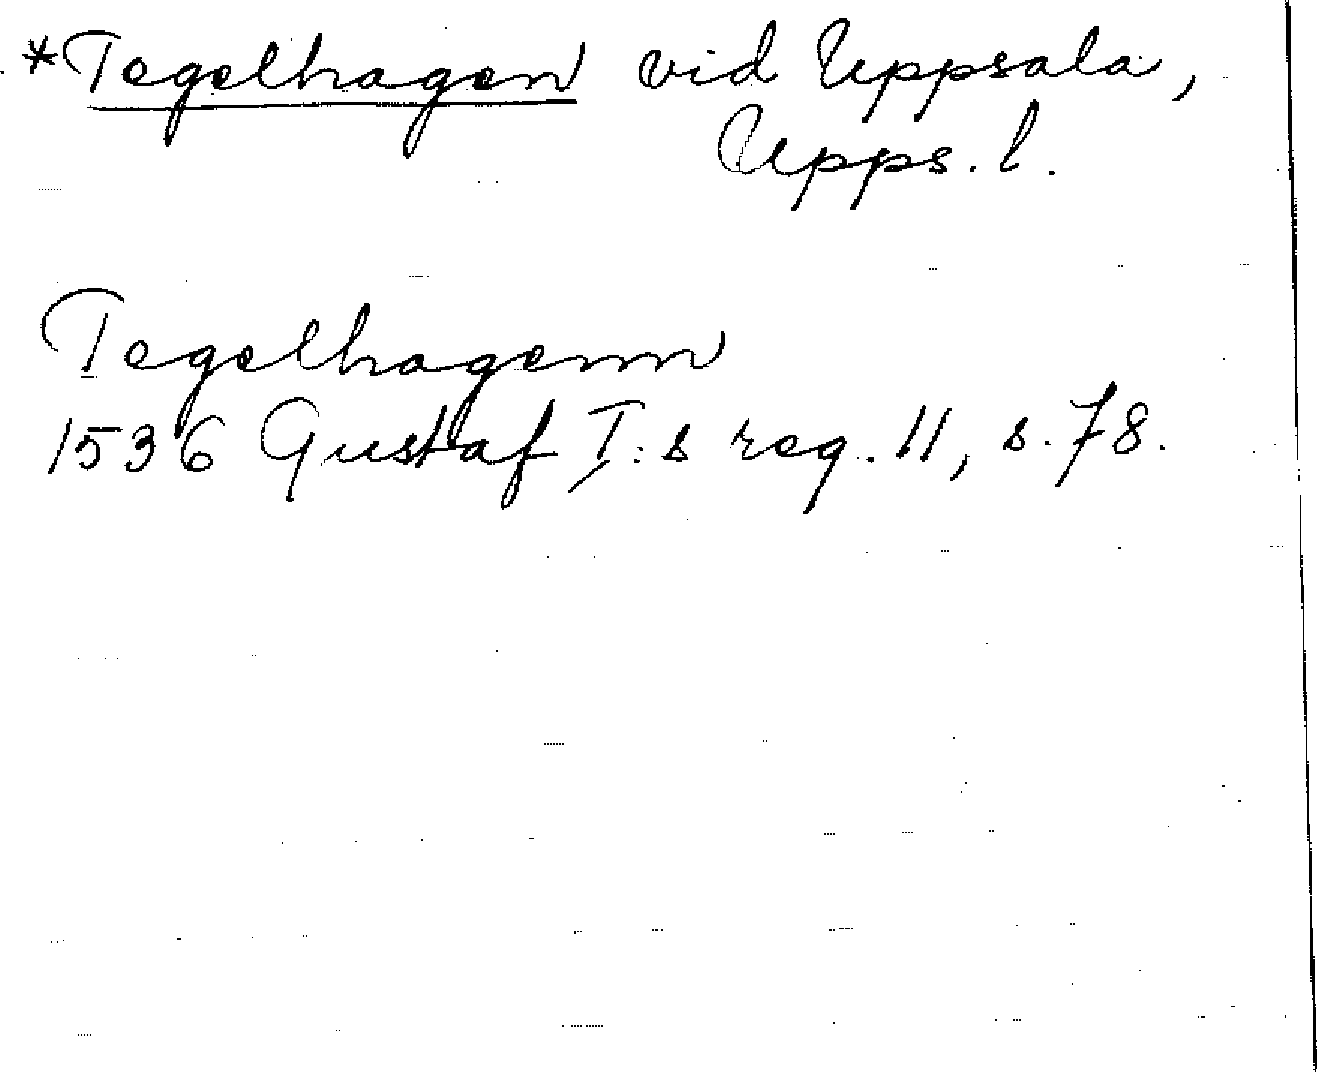 *Tegelhagen vid Uppsala,
Upps. l.
Tegelhagenn
1536 Gustaf I:s reg. 11, s. 78.